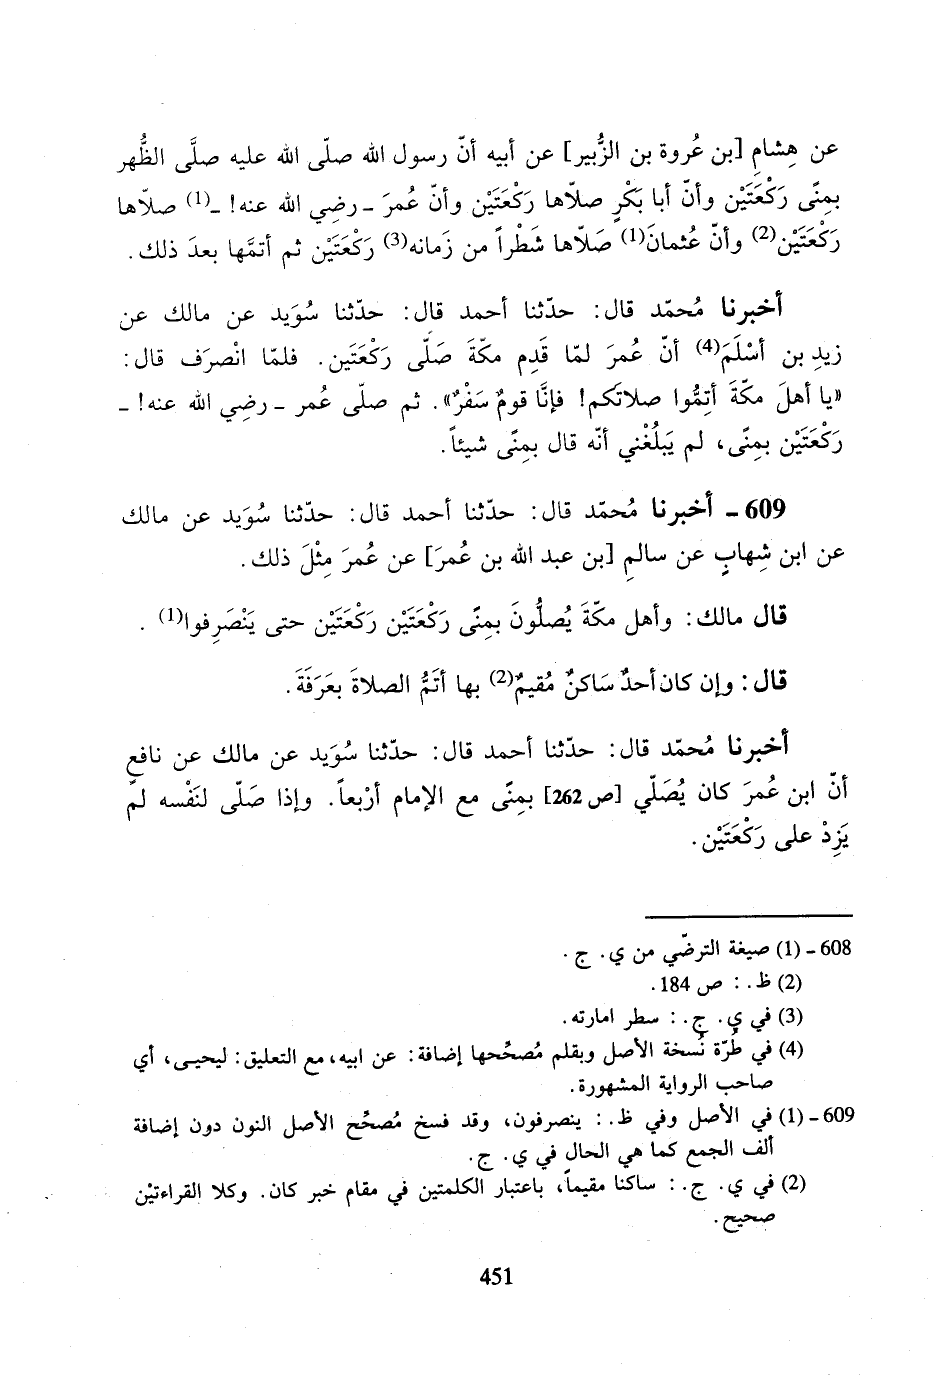 عن هِشامِ [بن عُروة بن الزُّبير] عن أبيه أنّ رسول الله صلّى الله عليه صلَّى الظُّهر
بمِنًى رَكْعَتَيْن وأنّ أبا بَكْرٍ صلّاها رَكْعَتَيْن وأنّ عُمرَ ـ رضي الله عنه! ـ(1) صلّاها
رَكْعَتَيْن(2) وأنّ عُثمانَ(1) صَلّاها شَطْراً من زَمانه(3) رَكْعَتَيْن ثم أتمَّها بعدَ ذلك.
أخبرنا مُحمّد قال: حدّثنا أحمد قال: حدّثنا سُوَيد عن مالك عن
زيدِ بن أسْلَمَ(4) أنّ عُمرَ لمّا قَدِم مكّةَ صَلّى رَكْعَتَين. فلمّا انْصرَف قال:
«يا أهلَ مكّةَ أتِمُّوا صلاتَكم! فإنَّا قومٌ سَفْرٌ». ثم صلّى عُمر ـ رضي الله عنه! ـ
رَكْعَتَيْن بمِنًى، لم يَبلُغْني أنّه قال بمِنًى شيئاً.
609 ـ أخبرنا مُحمّد قال: حدّثنا أحمد قال: حدّثنا سُوَيد عن مالك
عن ابن شِهابٍ عن سالمِ [بن عبد الله بن عُمرَ] عن عُمرَ مِثْلَ ذلك.
قال مالك: وأهل مكّةَ يُصلُّونَ بمِنًى رَكْعَتَيْن رَكْعَتَيْن حتى يَنْصَرِفوا(1).
قال: وإن كان أحدٌ سَاكنٌ مُقيمٌ(2) بها أتَمَّ الصلاةَ بعَرَفَةَ.
أخبرنا مُحمّد قال: حدّثنا أحمد قال: حدّثنا سُوَيد عن مالك عن نافعٍ
أنّ ابن عُمرَ كان يُصَلّي [ص 262] بمِنًى مع الإمام أرْبعاً. وإذا صَلّى لنَفْسه لمْ
يَزِدْ على رَكْعَتَيْن.
608 ـ (1) صيغة الترضّي من ي. ج.
(2) ظ. : ص 184.
(3) في ي. ج. : سطر امارته.
(4) في طُرّة نُسخة الأصل وبقلم مُصحِّحها إضافة: عن ابيه، مع التعليق: ليحيى، أي
صاحب الرواية المشهورة.
609 ـ (1) في الأصل وفي ظ. : ينصرفون، وقد فسخ مُصحِّح الأصل النون دون إضافة
ألف الجمع كما هي الحال في ي. ج.
(2) في ي. ج. : ساكنا مقيماً، باعتبار الكلمتين في مقام خبر كان. وكلا القراءتيْن
صحيح.
451